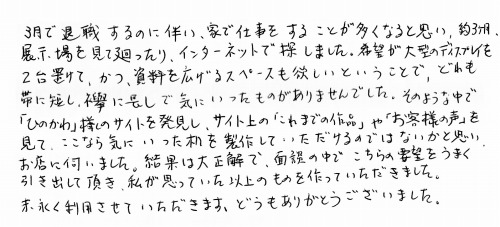 3月で退職するのに伴い、家で仕事をすることが多くなると思い、約3ヶ月、
展示場を見て廻ったり、インターネットで探しました。希望が大型のディスプレイを
2台置けて、かつ、資料を広げるスペースも欲しいということで、どれも
帯に短し、襷に長しで気にいったものがありませんでした。そのような中で
「ひのかわ」様のサイトを発見し、サイト上の「これまでの作品」や「お客様の声」を
見て、ここなら気にいった机を製作していただけるのではないかと思い、
お店に伺いました。結果は大正解で、面談の中でこちらの要望をうまく
引き出して頂き、私が思っていた以上のものを作っていただきました。
末永く利用させていただきます、どうもありがとうございました。